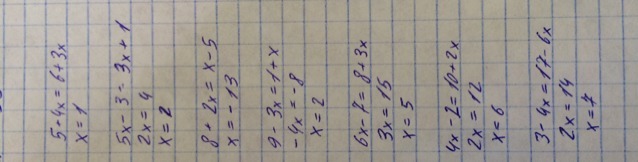 5+4x=6+3x
x=1
5x-3=3x+1
2x=4
x=2
8+2x=x-5
x=-13
9-3x=1+x
-4x=-8
x=2
6x-7=8+3x
3x=15
x=5
4x-2=10+2x
2x=12
x=6
3-4x=17-6x
2x=14
x=7